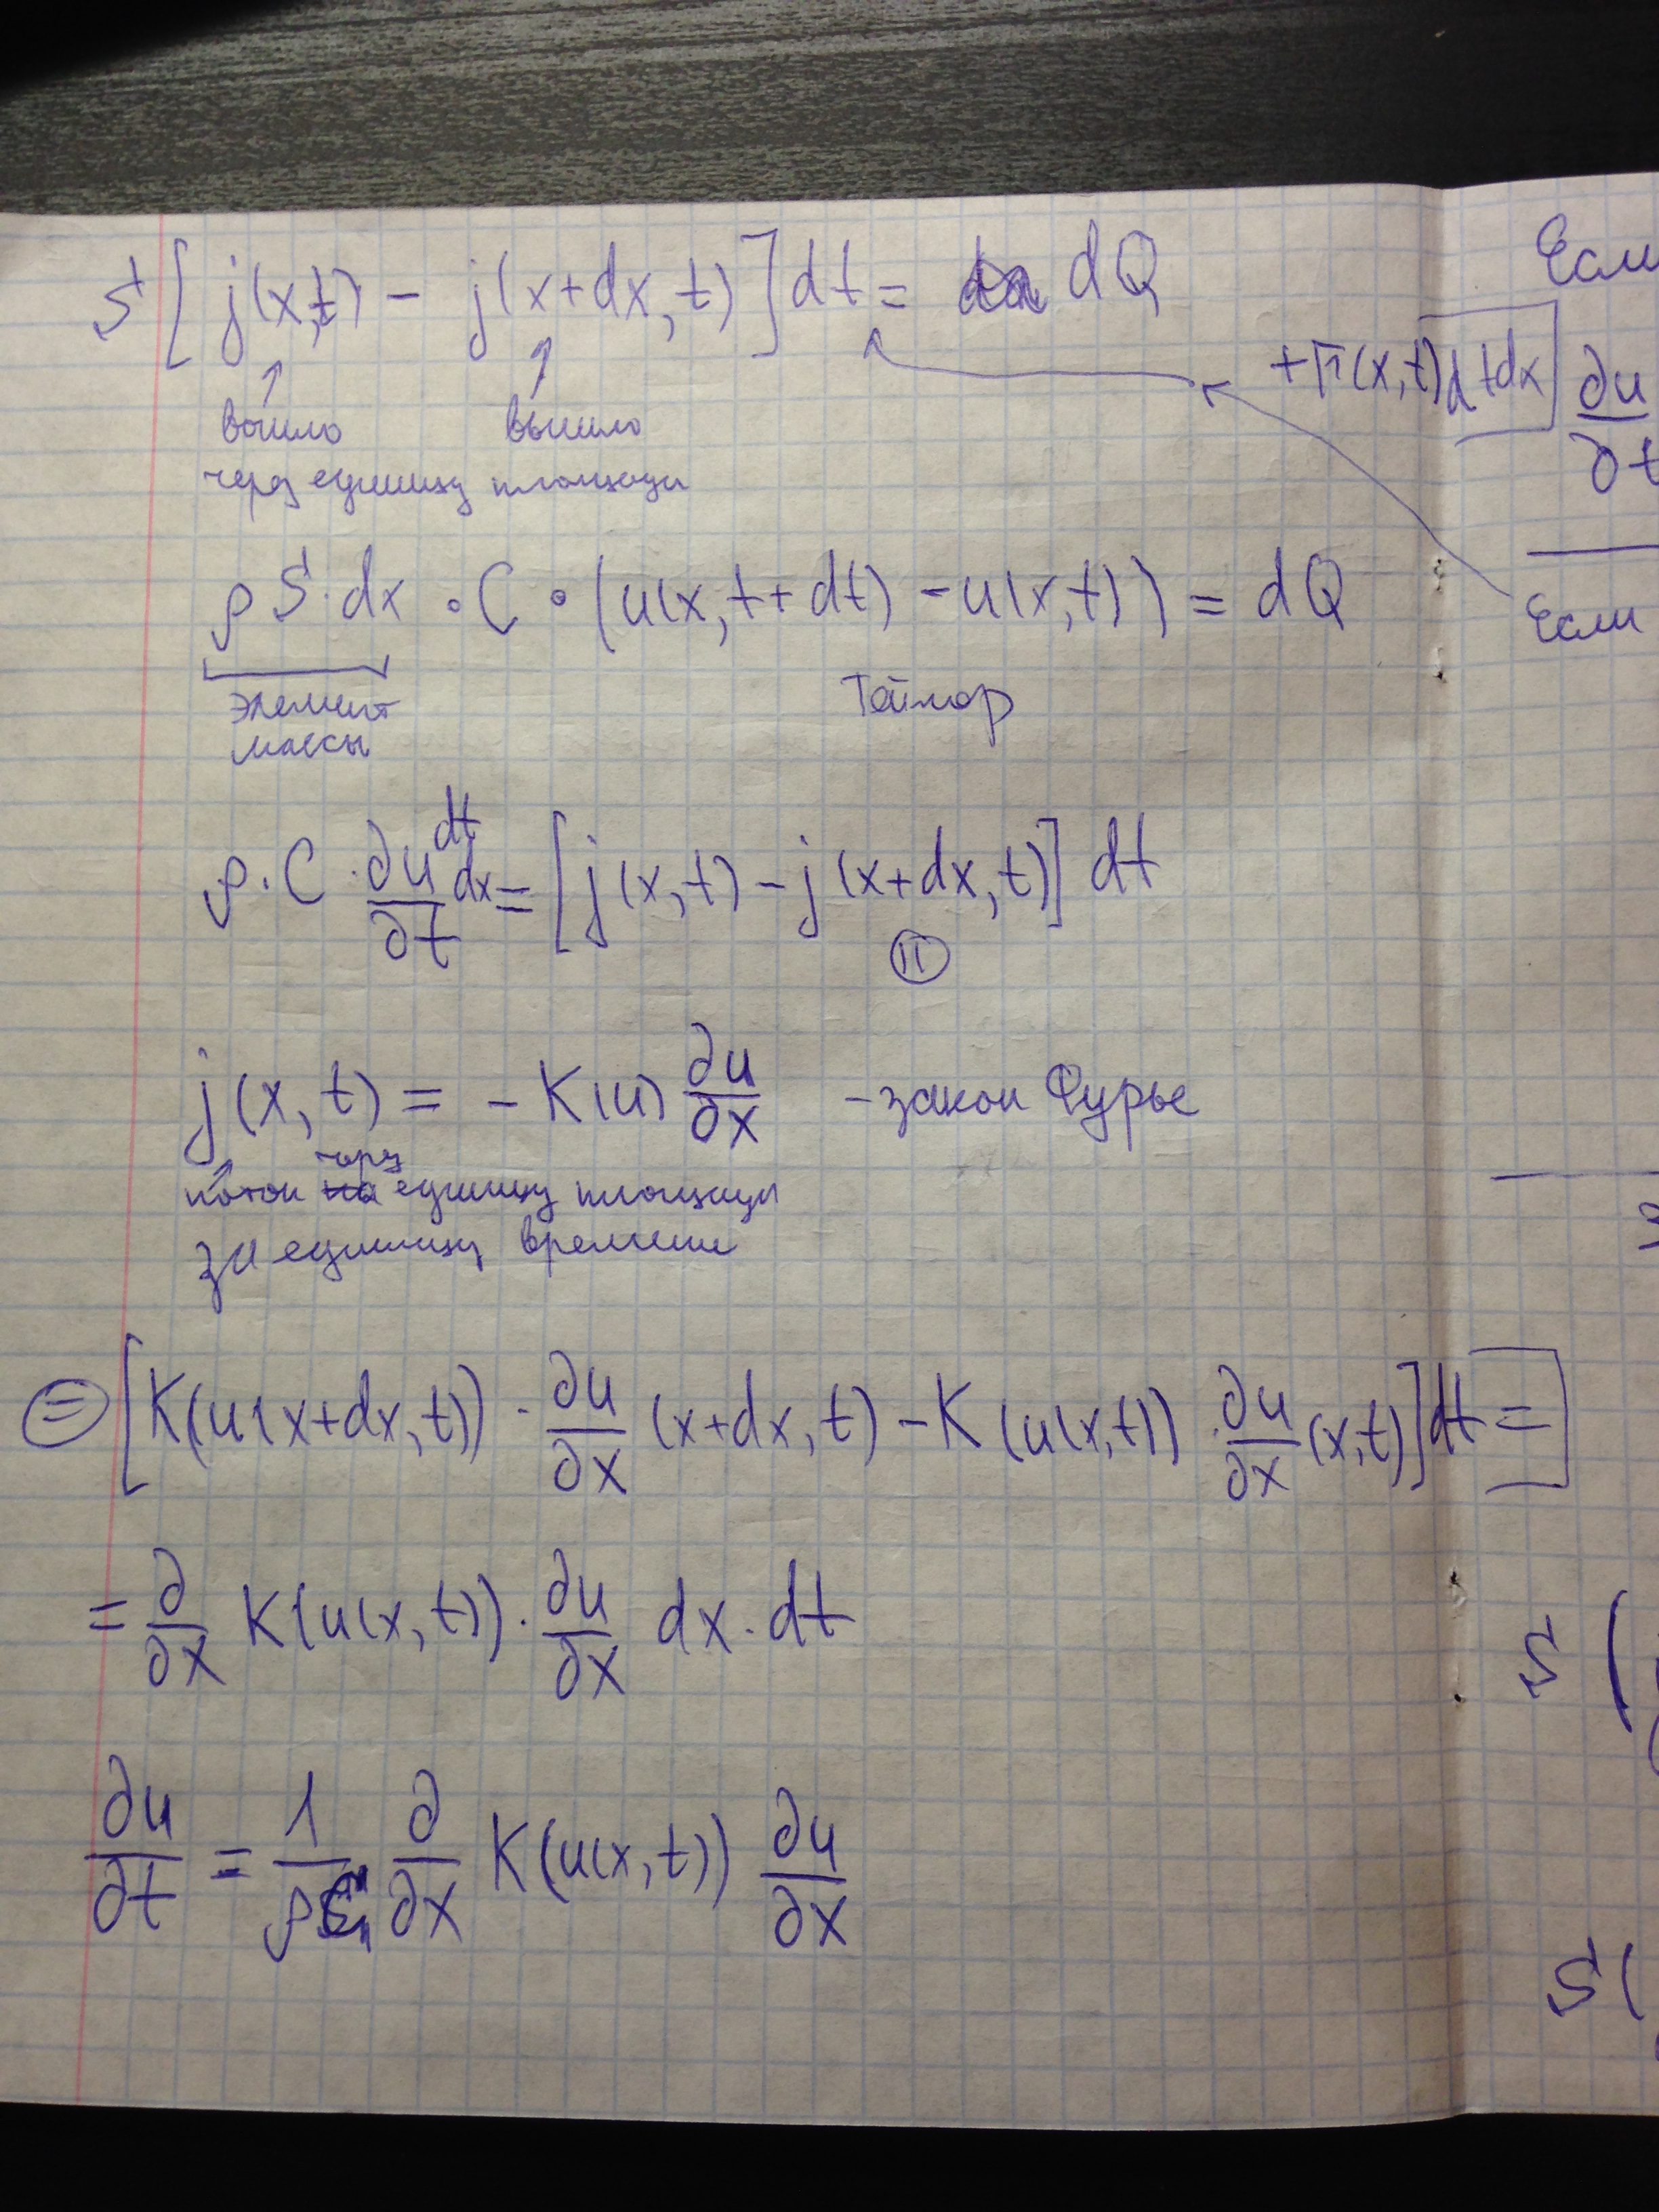 S [ j(x,t) − j(x+dx, t) ] dt = dQ
+F(x,t)dtdx
вошло вышло
через единицу площади
ρ S · dx · C · (u(x, t+dt) − u(x,t)) = dQ
элемент Тейлор
массы
ρ · C · ∂u/∂t dt dx = [ j(x,t) − j(x+dx, t) ] dt
(=)
j(x,t) = − K(u) ∂u/∂x − закон Фурье
поток через единицу площади
за единицу времени
(=) [ K(u(x+dx,t)) · ∂u/∂x (x+dx, t) − K(u(x,t)) · ∂u/∂x (x,t) ] dt =
= ∂/∂x K(u(x,t)) · ∂u/∂x dx · dt
∂u/∂t = 1/ρC ∂/∂x K(u(x,t)) ∂u/∂x
Если
∂u
∂t
Если
S (
S (